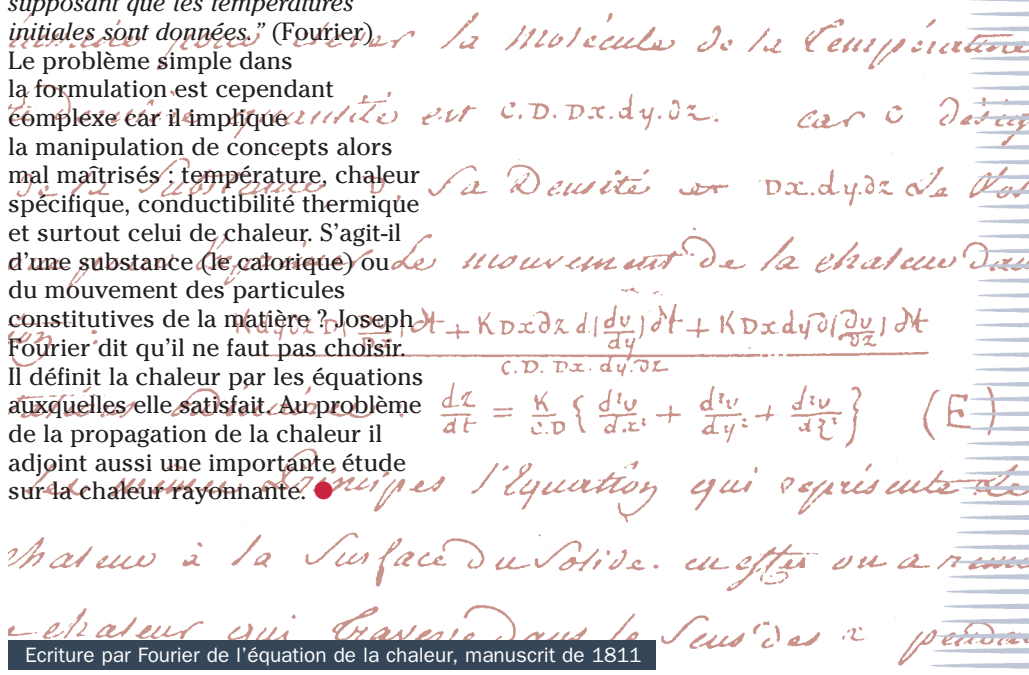 supposant que les températures
initiales sont données.” (Fourier)
Le problème simple dans
la formulation est cependant
complexe car il implique
la manipulation de concepts alors
mal maîtrisés : température, chaleur
spécifique, conductibilité thermique
et surtout celui de chaleur. S’agit-il
d’une substance (le calorique) ou
du mouvement des particules
constitutives de la matière ? Joseph
Fourier dit qu’il ne faut pas choisir.
Il définit la chaleur par les équations
auxquelles elle satisfait. Au problème
de la propagation de la chaleur il
adjoint aussi une importante étude
sur la chaleur rayonnante.
la molécule de la température
quantité est C.D. Dx.dy.dz. car C
la Densité et Dx.dy.dz le
le mouvement de la chaleur dans
dt + K Dx dz d(dv/dy) dt + K Dx dy d(dv/dz) dt
C.D. Dx. dy. dz
dz/dt = K/C.D { d²v/d.x² + d²v/dy² + d²v/dz² } (E)
principes l'Equation qui représente le
chaleur à la surface du solide. en effet on a
chaleur qui traverse dans le sens des x
Ecriture par Fourier de l’équation de la chaleur, manuscrit de 1811